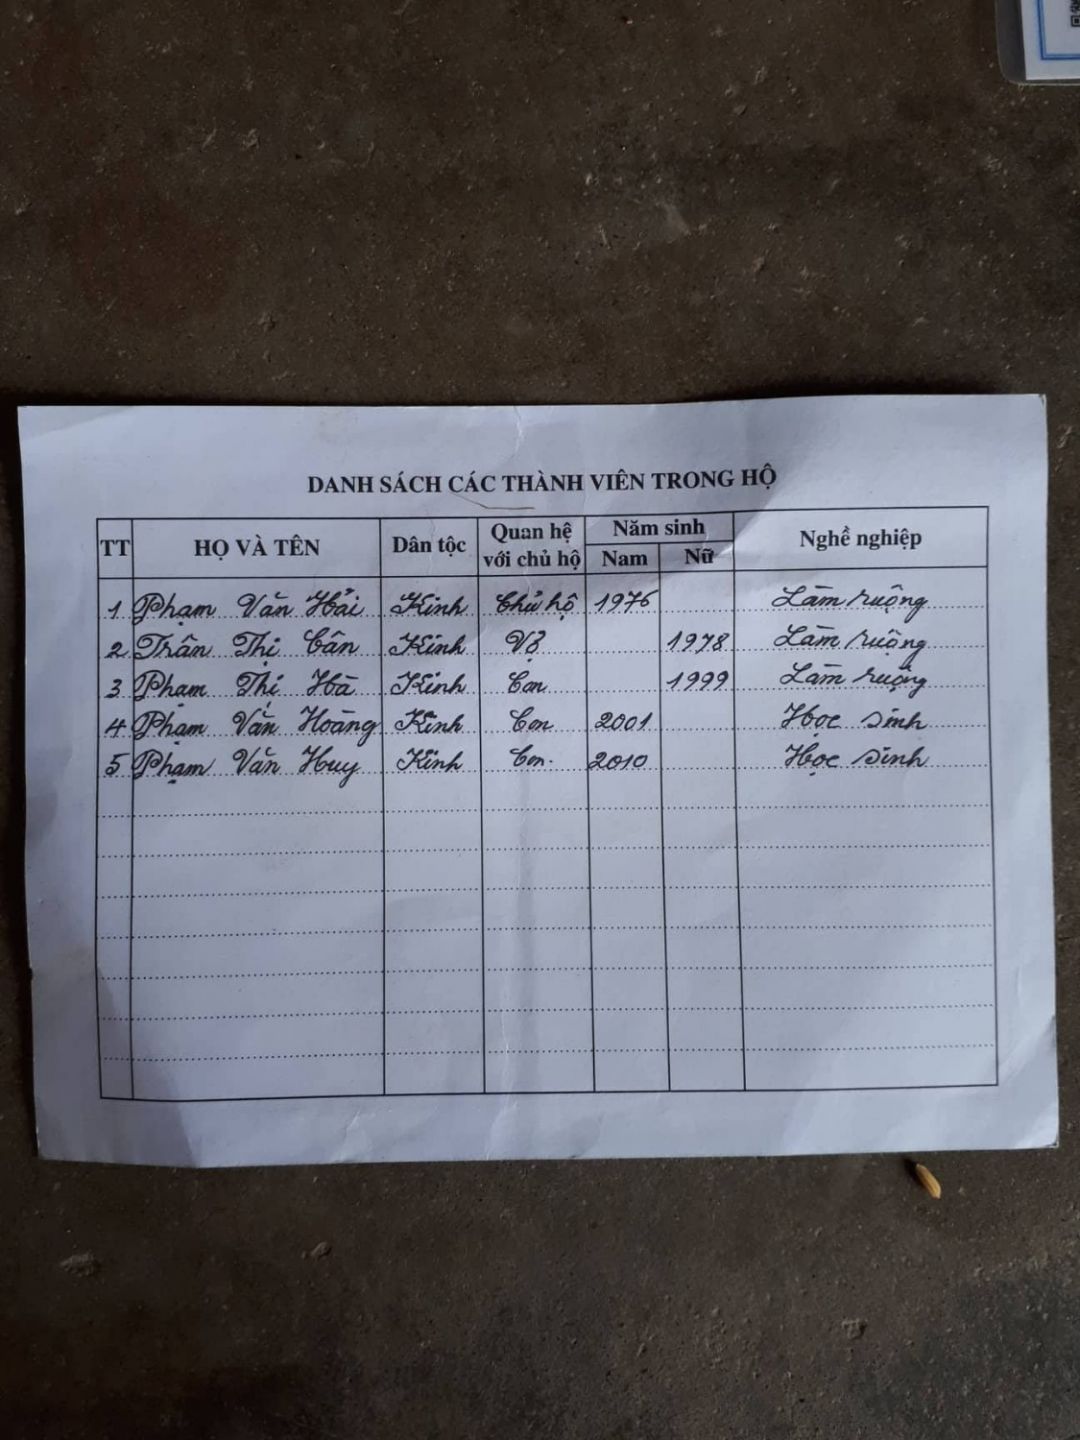 DANH SÁCH CÁC THÀNH VIÊN TRONG HỘ
TT HỌ VÀ TÊN Dân tộc Quan hệ với chủ hộ Năm sinh Nghề nghiệp
Nam Nữ
1 Phạm Văn Hải Kinh Chủ hộ 1976 Làm ruộng
2 Trần Thị Cân Kinh Vợ 1978 Làm ruộng
3 Phạm Thị Hà Kinh Con 1999 Làm ruộng
4 Phạm Văn Hoàng Kinh Con 2001 Học sinh
5 Phạm Văn Huy Kinh Con. 2010 Học sinh